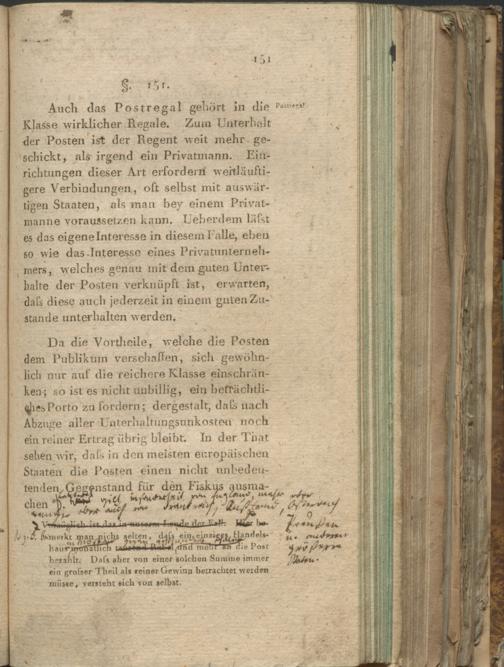 151
§. 151.
Auch das Postregal gehört in die
Postregal
Klasse wirklicher Regale. Zum Unterhalt
der Posten ist der Regent weit mehr ge-
schickt, als irgend ein Privatmann. Ein-
richtungen dieser Art erfordern weitläufti-
gere Verbindungen, oft selbst mit auswär-
tigen Staaten, als man bey einem Privat-
manne voraussetzen kann. Ueberdem läfst
es das eigene Interesse in diesem Falle, eben
so wie das Interesse eines Privatunterneh-
mers, welches genau mit dem guten Unter-
halte der Posten verknüpft ist, erwarten,
dafs diese auch jederzeit in einem guten Zu-
stande unterhalten werden.
Da die Vortheile, welche die Posten
dem Publikum verschaffen, sich gewöhn-
lich nur auf die reichere Klasse einschrän-
ken; so ist es nicht unbillig, ein beträchtli-
ches Porto zu fordern; dergestalt, dafs nach
Abzuge aller Unterhaltungsunkosten noch
ein reiner Ertrag übrig bleibt. In der That
sehen wir, dafs in den meisten europäischen
Staaten die Posten einen nicht unbedeu-
tenden Gegenstand für den Fiskus ausma-
chen
gilt von England, mehr oder
weniger aber auch von Frankreich, Rußland, Österreich
Preußen
u. anderen
größern
Vorzüglich ist das in unserm Lande der Fall. Hier be-
merkt man nicht selten, dafs ein einziges Handels-
haus monatlich tausend Rubel und mehr an die Post
bezahlt. Dafs aber von einer solchen Summe immer
ein grofser Theil als reiner Gewinn betrachtet werden
müsse, versteht sich von selbst.